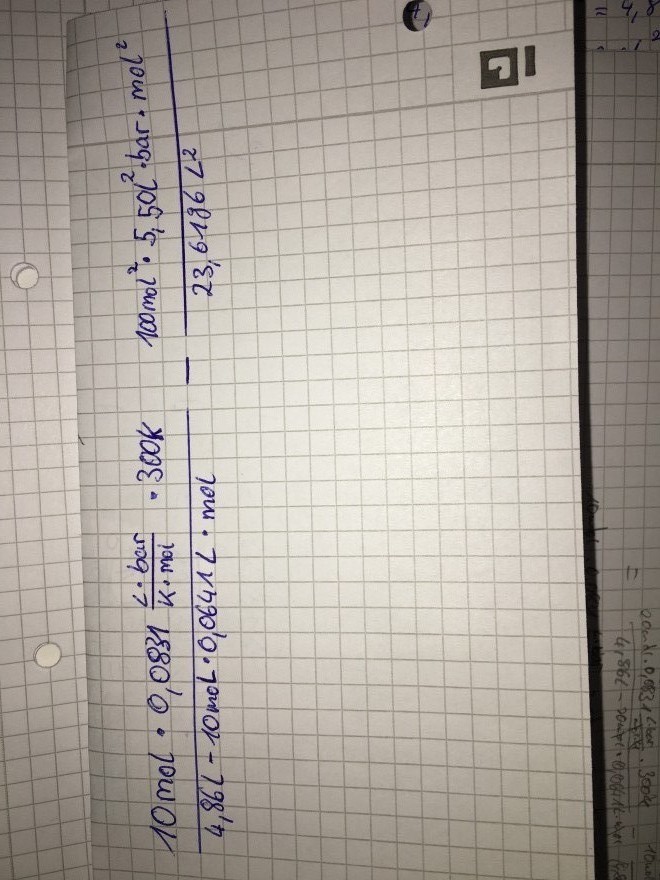 10 mol · 0,0831 L·bar/K·mol · 300K
4,86L - 10mol · 0,0641 L · mol
—
100mol² · 5,50L² · bar · mol²
23,6196 L²